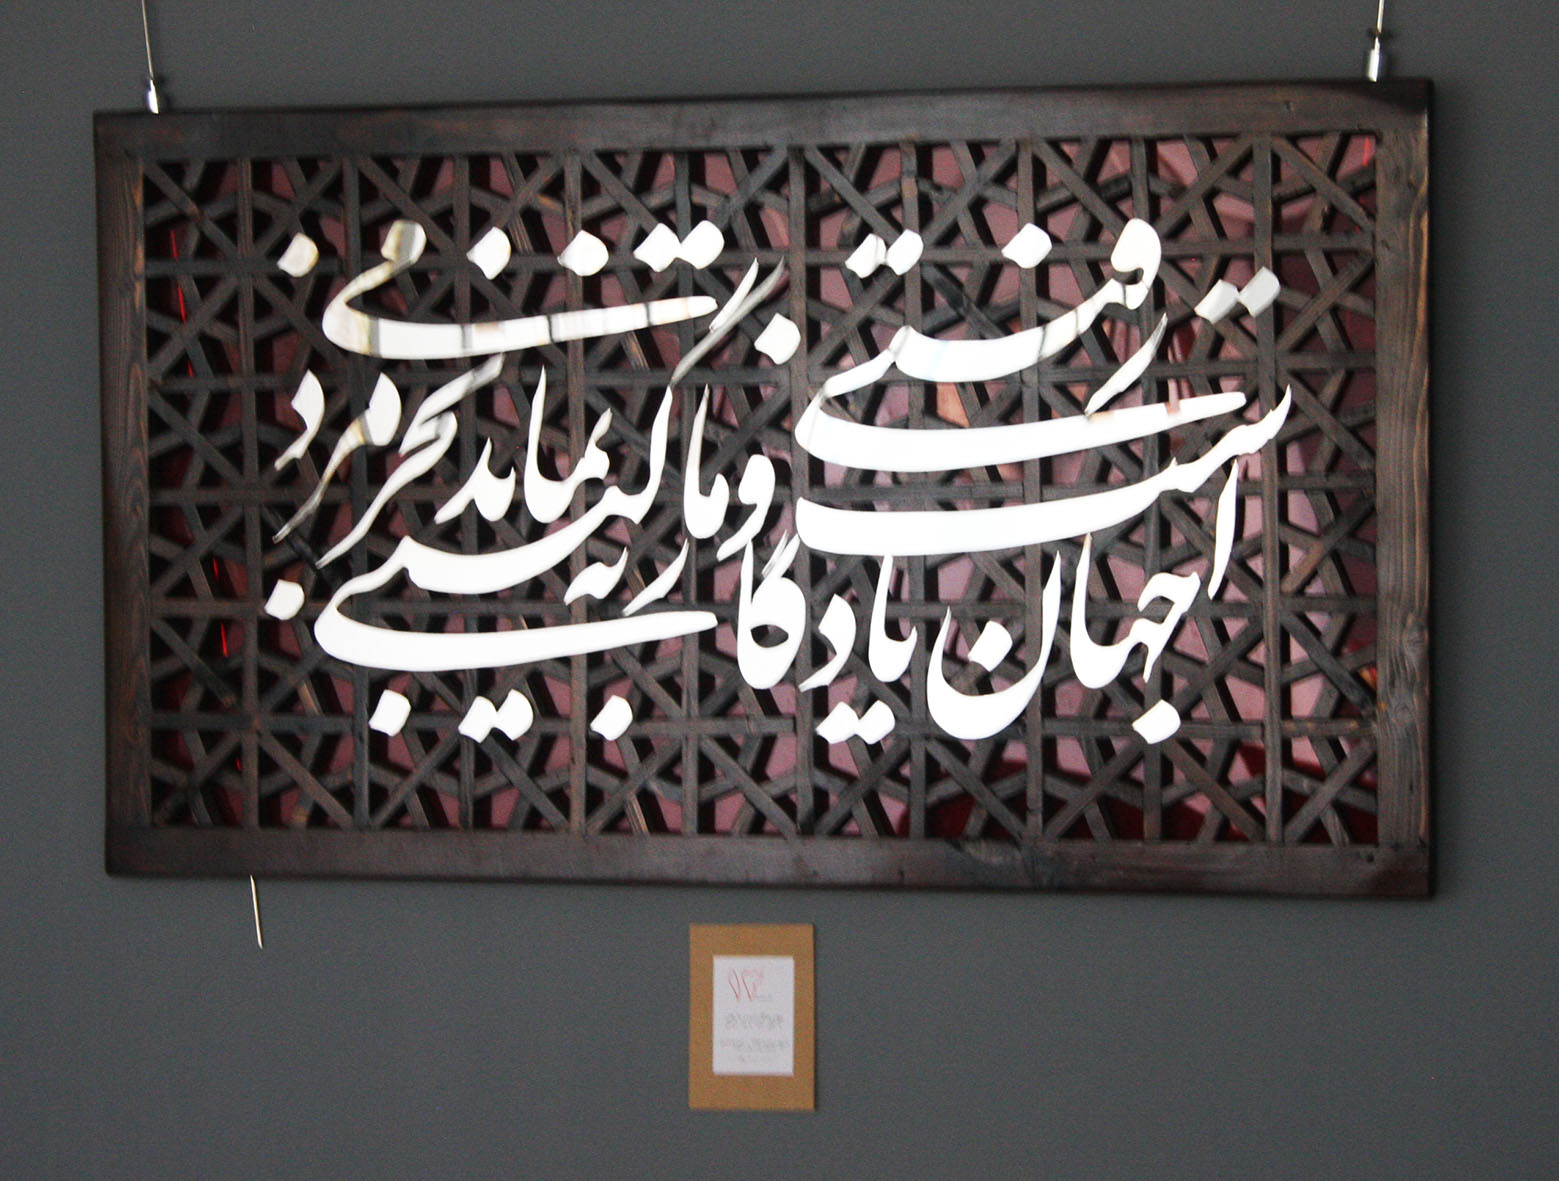 جهان یادگار است و ما رفتنی
به گیتی نماند بجز مردمی